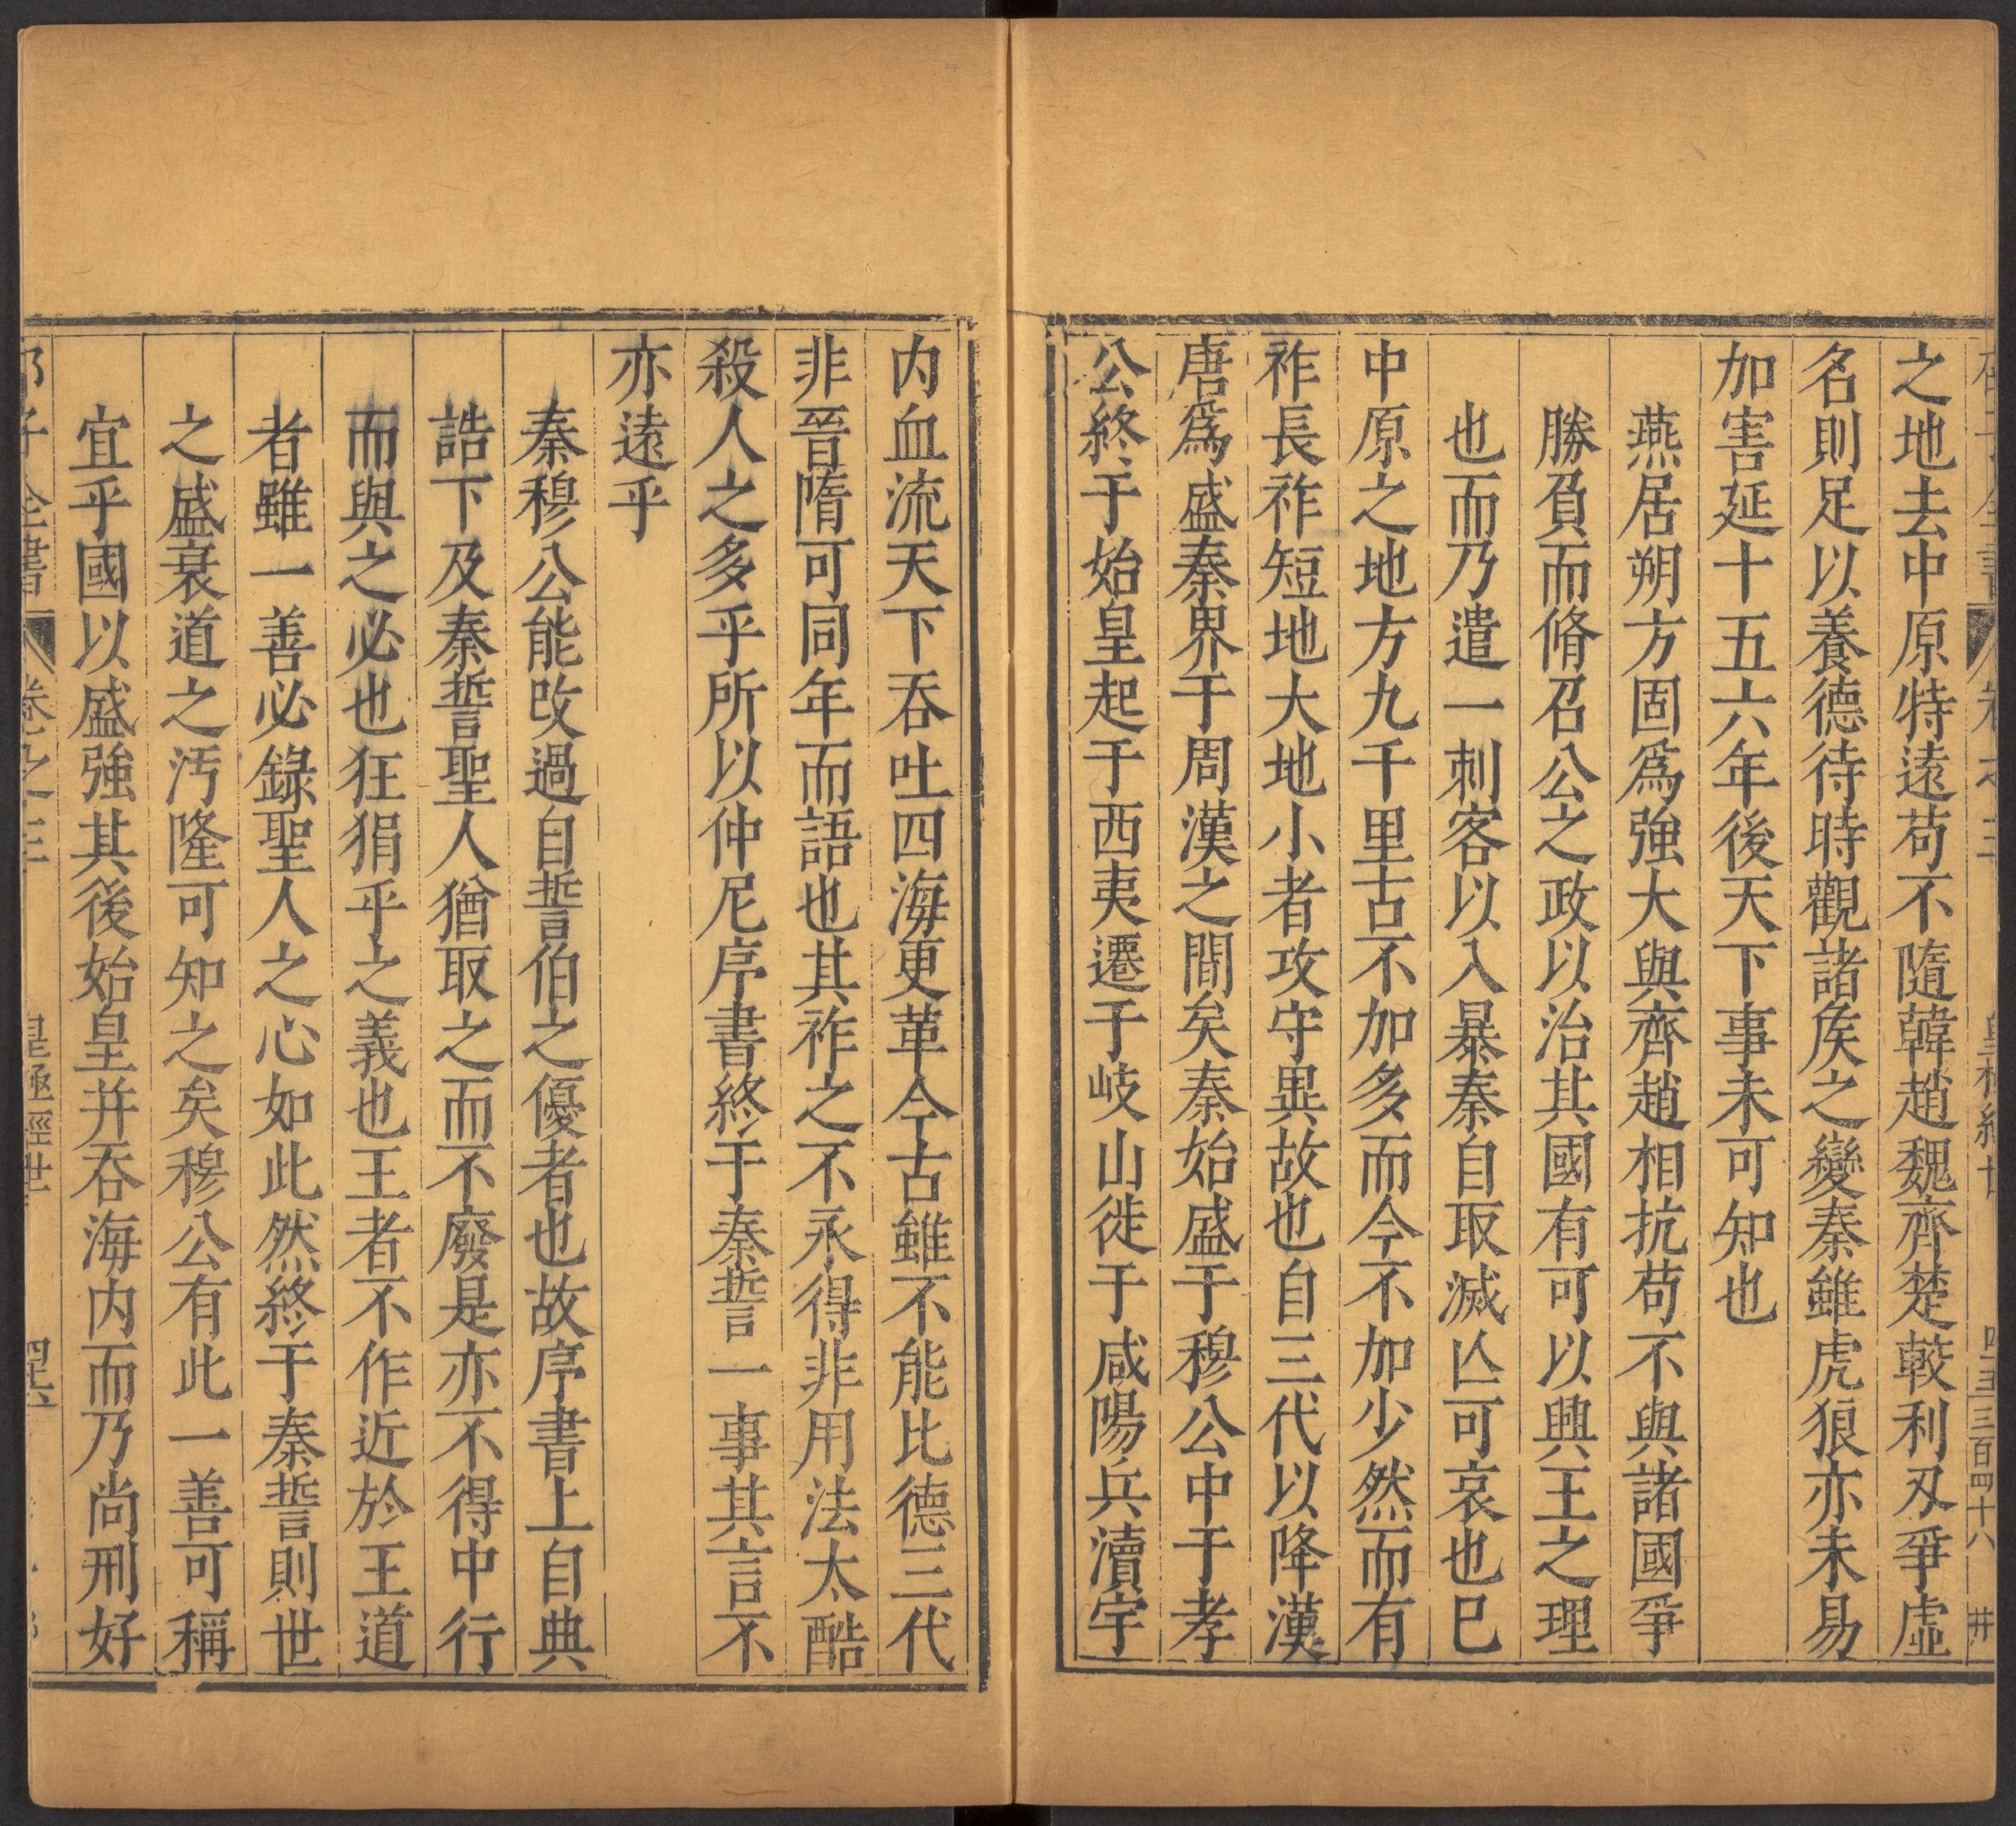 之地去中原特遠苟不隨韓趙魏齊楚較利刄爭虛
名則足以養德待時觀諸矦之變秦雖虎狼亦未易
加害延十五六年後天下事未可知也
燕居朔方固爲強大與齊趙相抗苟不與諸國爭
勝負而脩召公之政以治其國有可以興王之理
也而乃遣一刺客以入暴秦自取滅亾可哀也巳
中原之地方九千里古不加多而今不加少然而有
祚長祚短地大地小者攻守異故也自三代以降漢
唐爲盛秦界于周漢之間矣秦始盛于穆公中于孝
公終于始皇起于西夷遷于岐山徙于咸陽兵瀆宇
内血流天下吞吐四海更革今古雖不能比德三代
非晉隋可同年而語也其祚之不永得非用法太酷
殺人之多乎所以仲尼序書終于秦誓一事其言不
亦遠乎
秦穆公能攺過自誓伯之優者也故序書上自典
誥下及秦誓聖人猶取之而不廢是亦不得中行
而與之必也狂狷乎之義也王者不作近於王道
者雖一善必錄聖人之心如此然終于秦誓則世
之盛衰道之汚隆可知之矣穆公有此一善可稱
宜乎國以盛強其後始皇并吞海内而乃尚刑好
子全書 卷之三 皇極經世